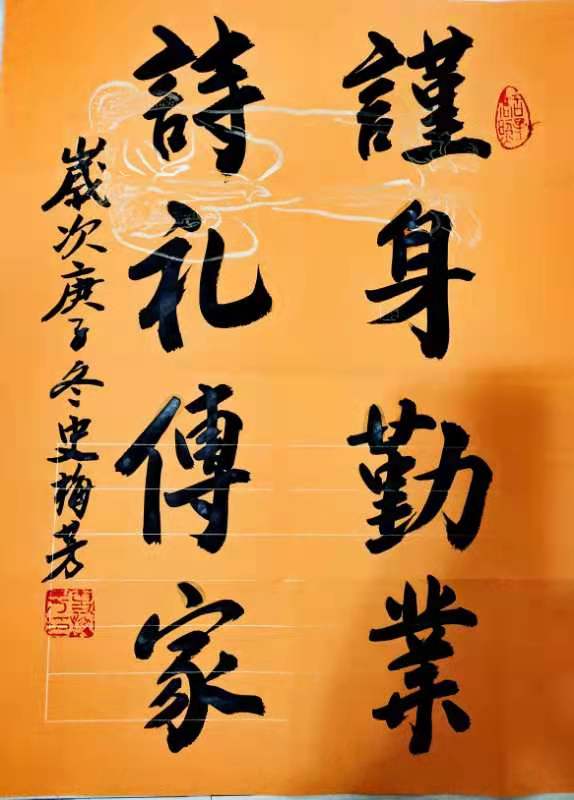 謹身勤業
詩礼傳家
歲次庚子冬史梅芳